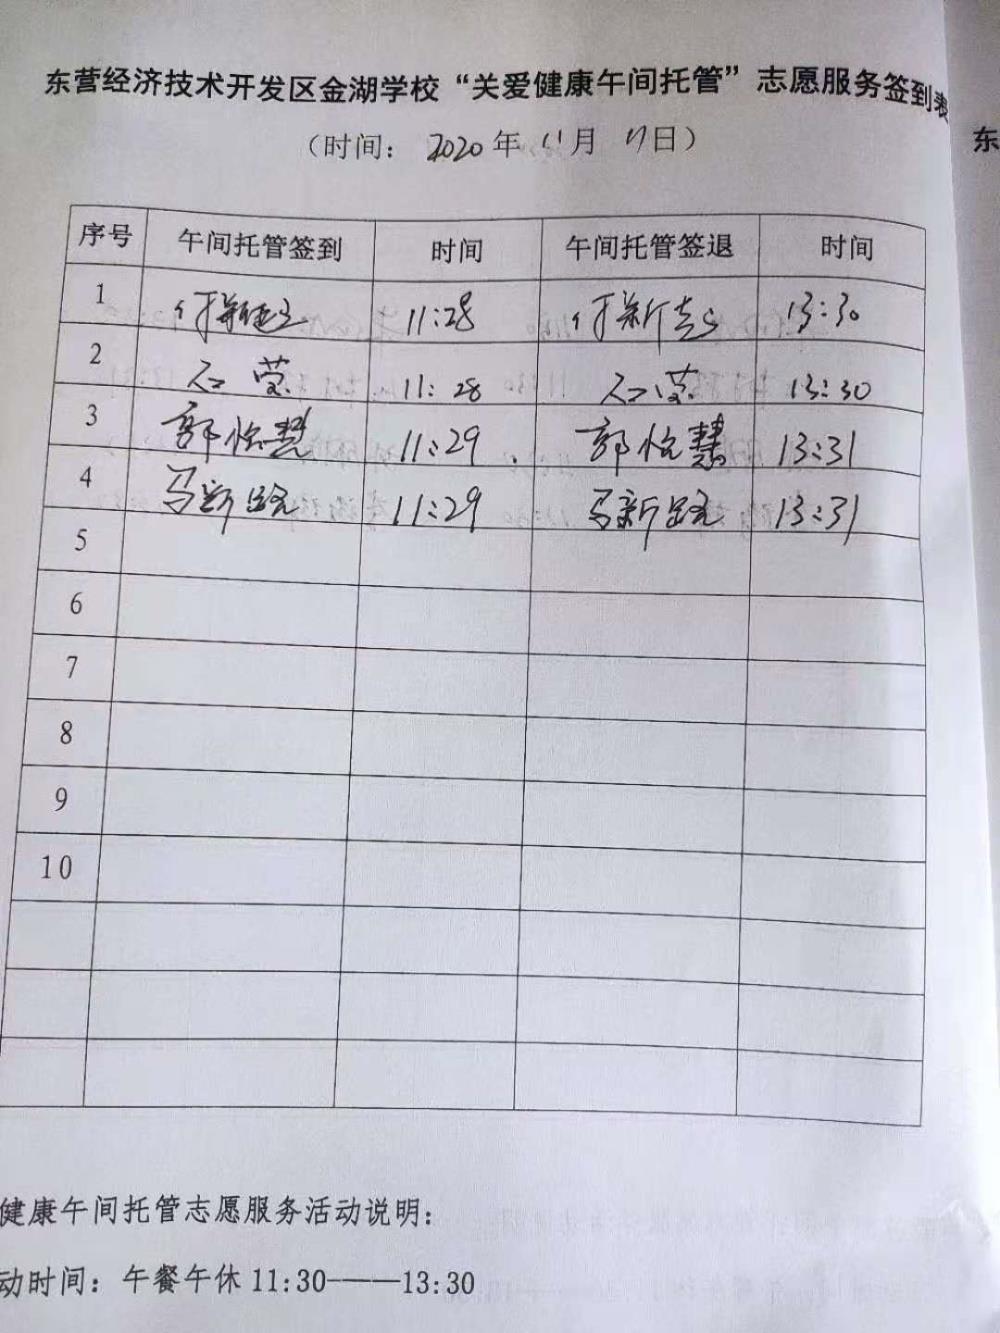 东营经济技术开发区金湖学校“关爱健康午间托管”志愿服务签到表
（时间： 2020年 11月 17日）
东
序号 午间托管签到 时间 午间托管签退 时间
1 11:28 13:30
2 石莹 11:28 石莹 13:30
3 郭怡慧 11:29 郭怡慧 13:31
4 马新路 11:29 马新路 13:31
5
6
7
8
9
10
健康午间托管志愿服务活动说明：
动时间：午餐午休 11:30——13:30